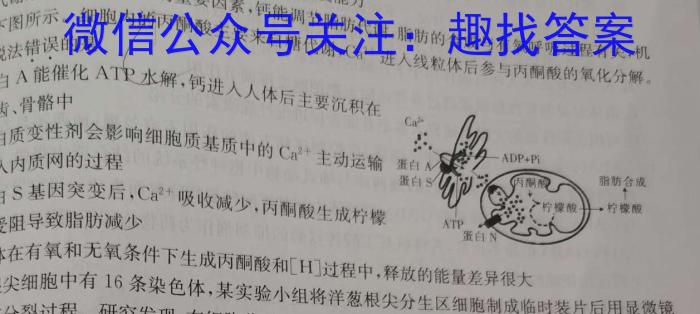 重要因素,钙能调节脂肪代谢
微信公众号关注:趣找答案
下图所示
进入线粒体后参与丙酮酸的氧化分解。
说法错误的是
白A能催化ATP水解,钙进入人体后主要沉积在
齿、骨骼中
白质变性剂会影响细胞质基质中的Ca²⁺主动运输
入内质网的过程
白S基因突变后,Ca²⁺吸收减少,丙酮酸生成柠檬
受阻导致脂肪减少
Ca²⁺
蛋白A
蛋白S
ADP+Pi
ATP
蛋白N
丙酮酸
柠檬酸
柠檬酸
脂肪合成
体在有氧和无氧条件下生成丙酮酸和[H]过程中,释放的能量差异很大
尖细胞中有16条染色体,某实验小组将洋葱根尖分生区细胞制成临时装片后用显微镜
分裂过程
研究发现